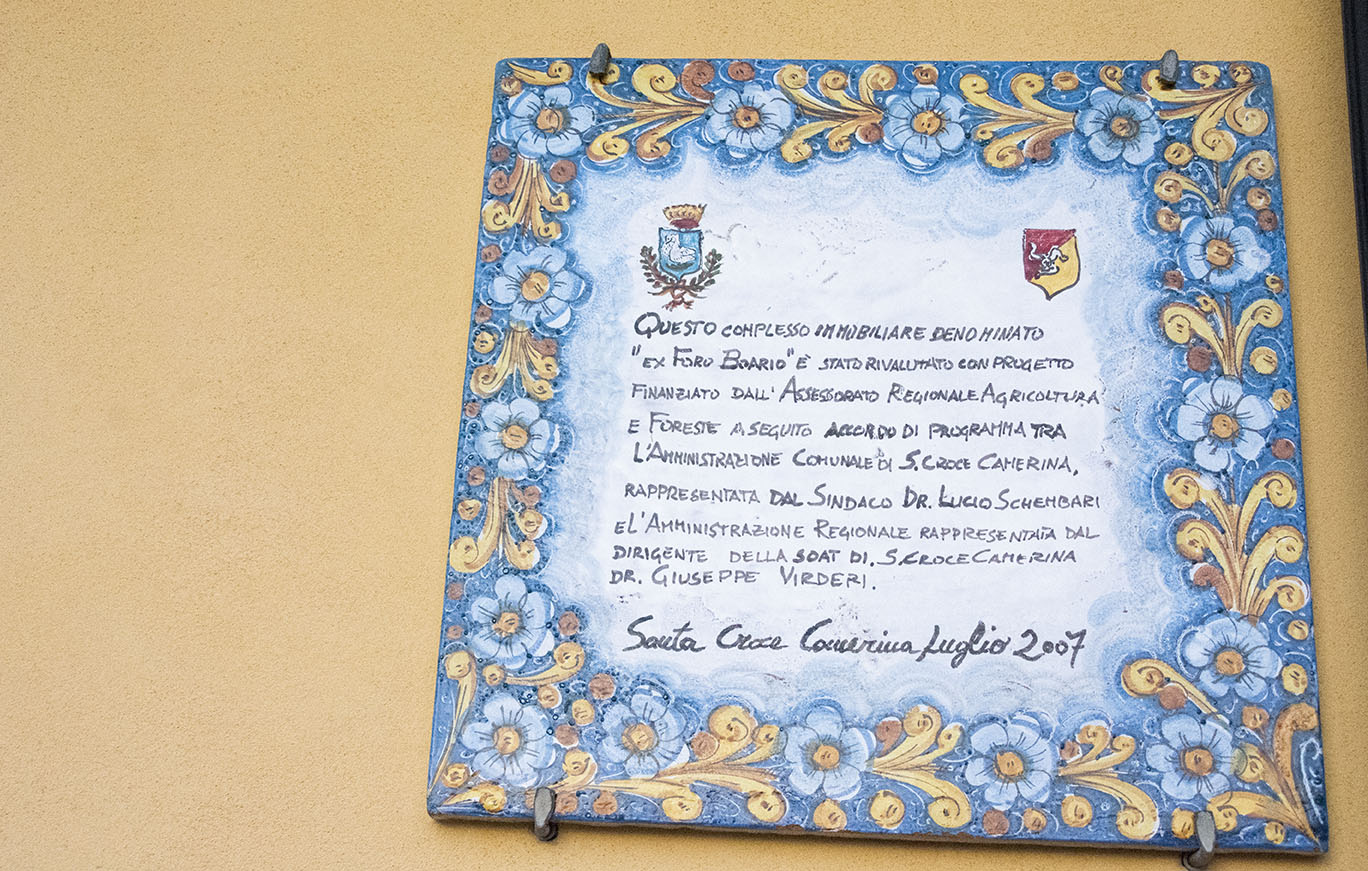 QUESTO COMPLESSO IMMOBILIARE DENOMINATO
"EX FORO BOARIO" È STATO RIVALUTATO CON PROGETTO
FINANZIATO DALL'ASSESSORATO REGIONALE AGRICOLTURA
E FORESTE A SEGUITO ACCORDO DI PROGRAMMA TRA
L'AMMINISTRAZIONE COMUNALE DI S. CROCE CAMERINA,
RAPPRESENTATA DAL SINDACO DR. LUCIO SCHEMBARI
E L'AMMINISTRAZIONE REGIONALE RAPPRESENTATA DAL
DIRIGENTE DELLA SOAT DI. S. CROCE CAMERINA
DR. GIUSEPPE VIRDERI.
Santa Croce Camerina Luglio 2007